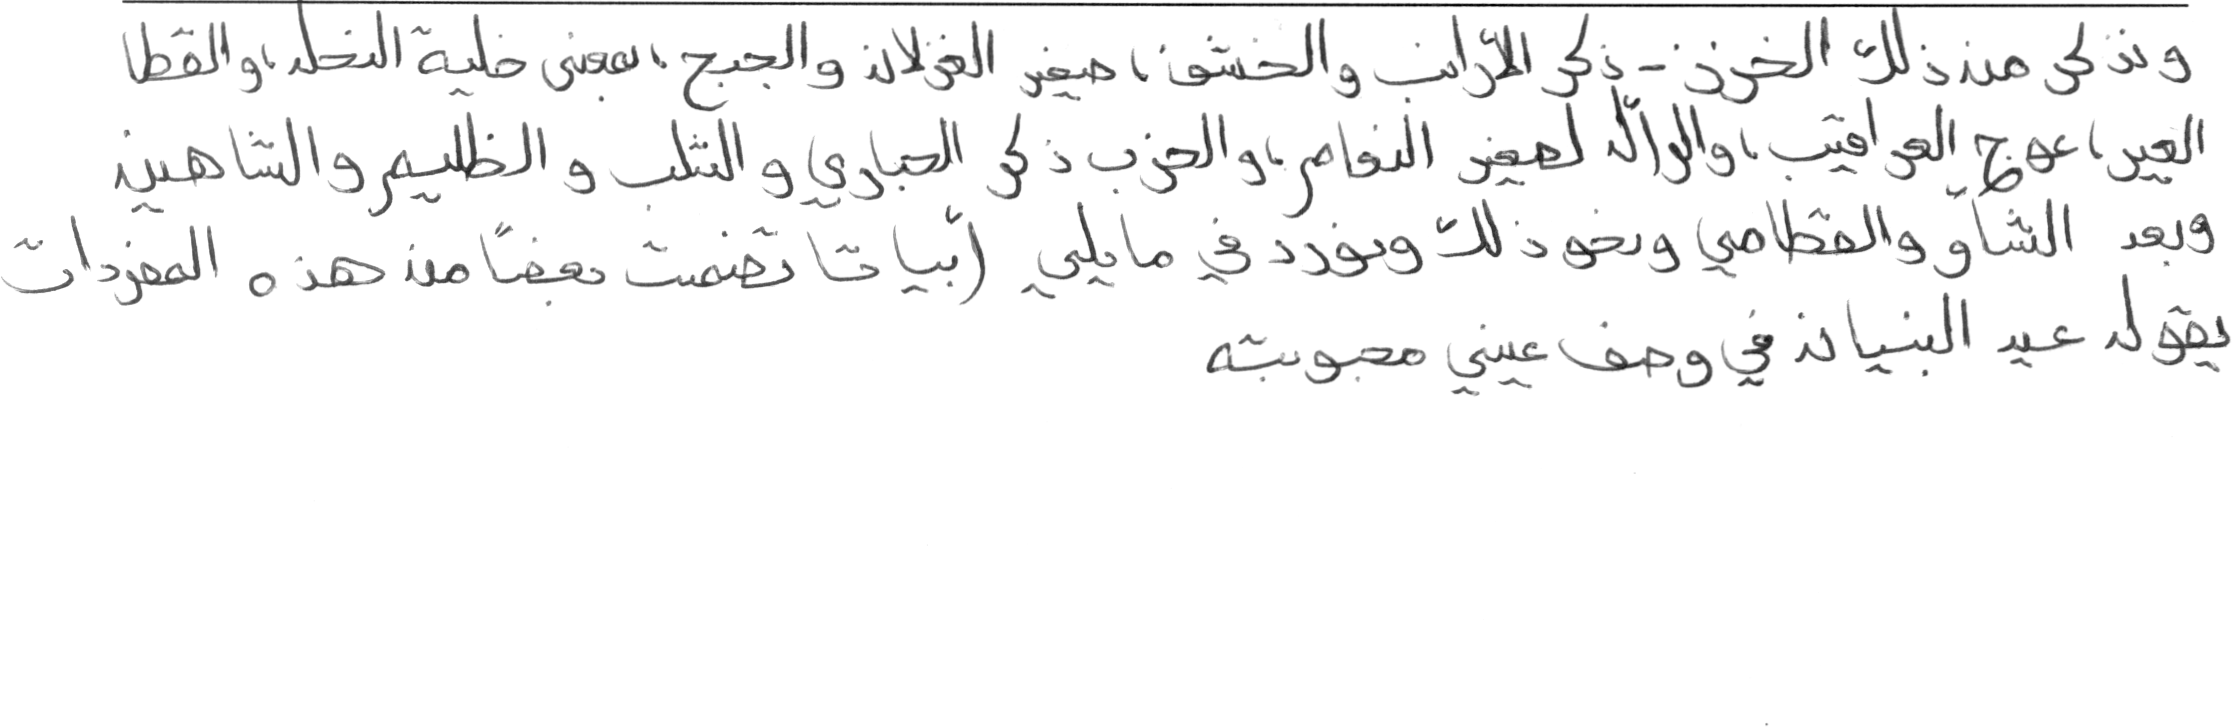 ونذكر من ذلك الخزز - ذكر الأرانب والخشف، صغير الغزلان والجبح، بمعنى خلية النحل، والقطا
العير، عوج العراقيب، والرأل لصغير النعام، والحزب ذكر الحباري والثلب والظليم والشاهين
وبعد الشأو والقطامي ونحو ذلك ونورد في ما يلي أبياتا تضمنت بعضًا من هذه المفردات
يقول عيد البنيان في وصف عيني محبوبته